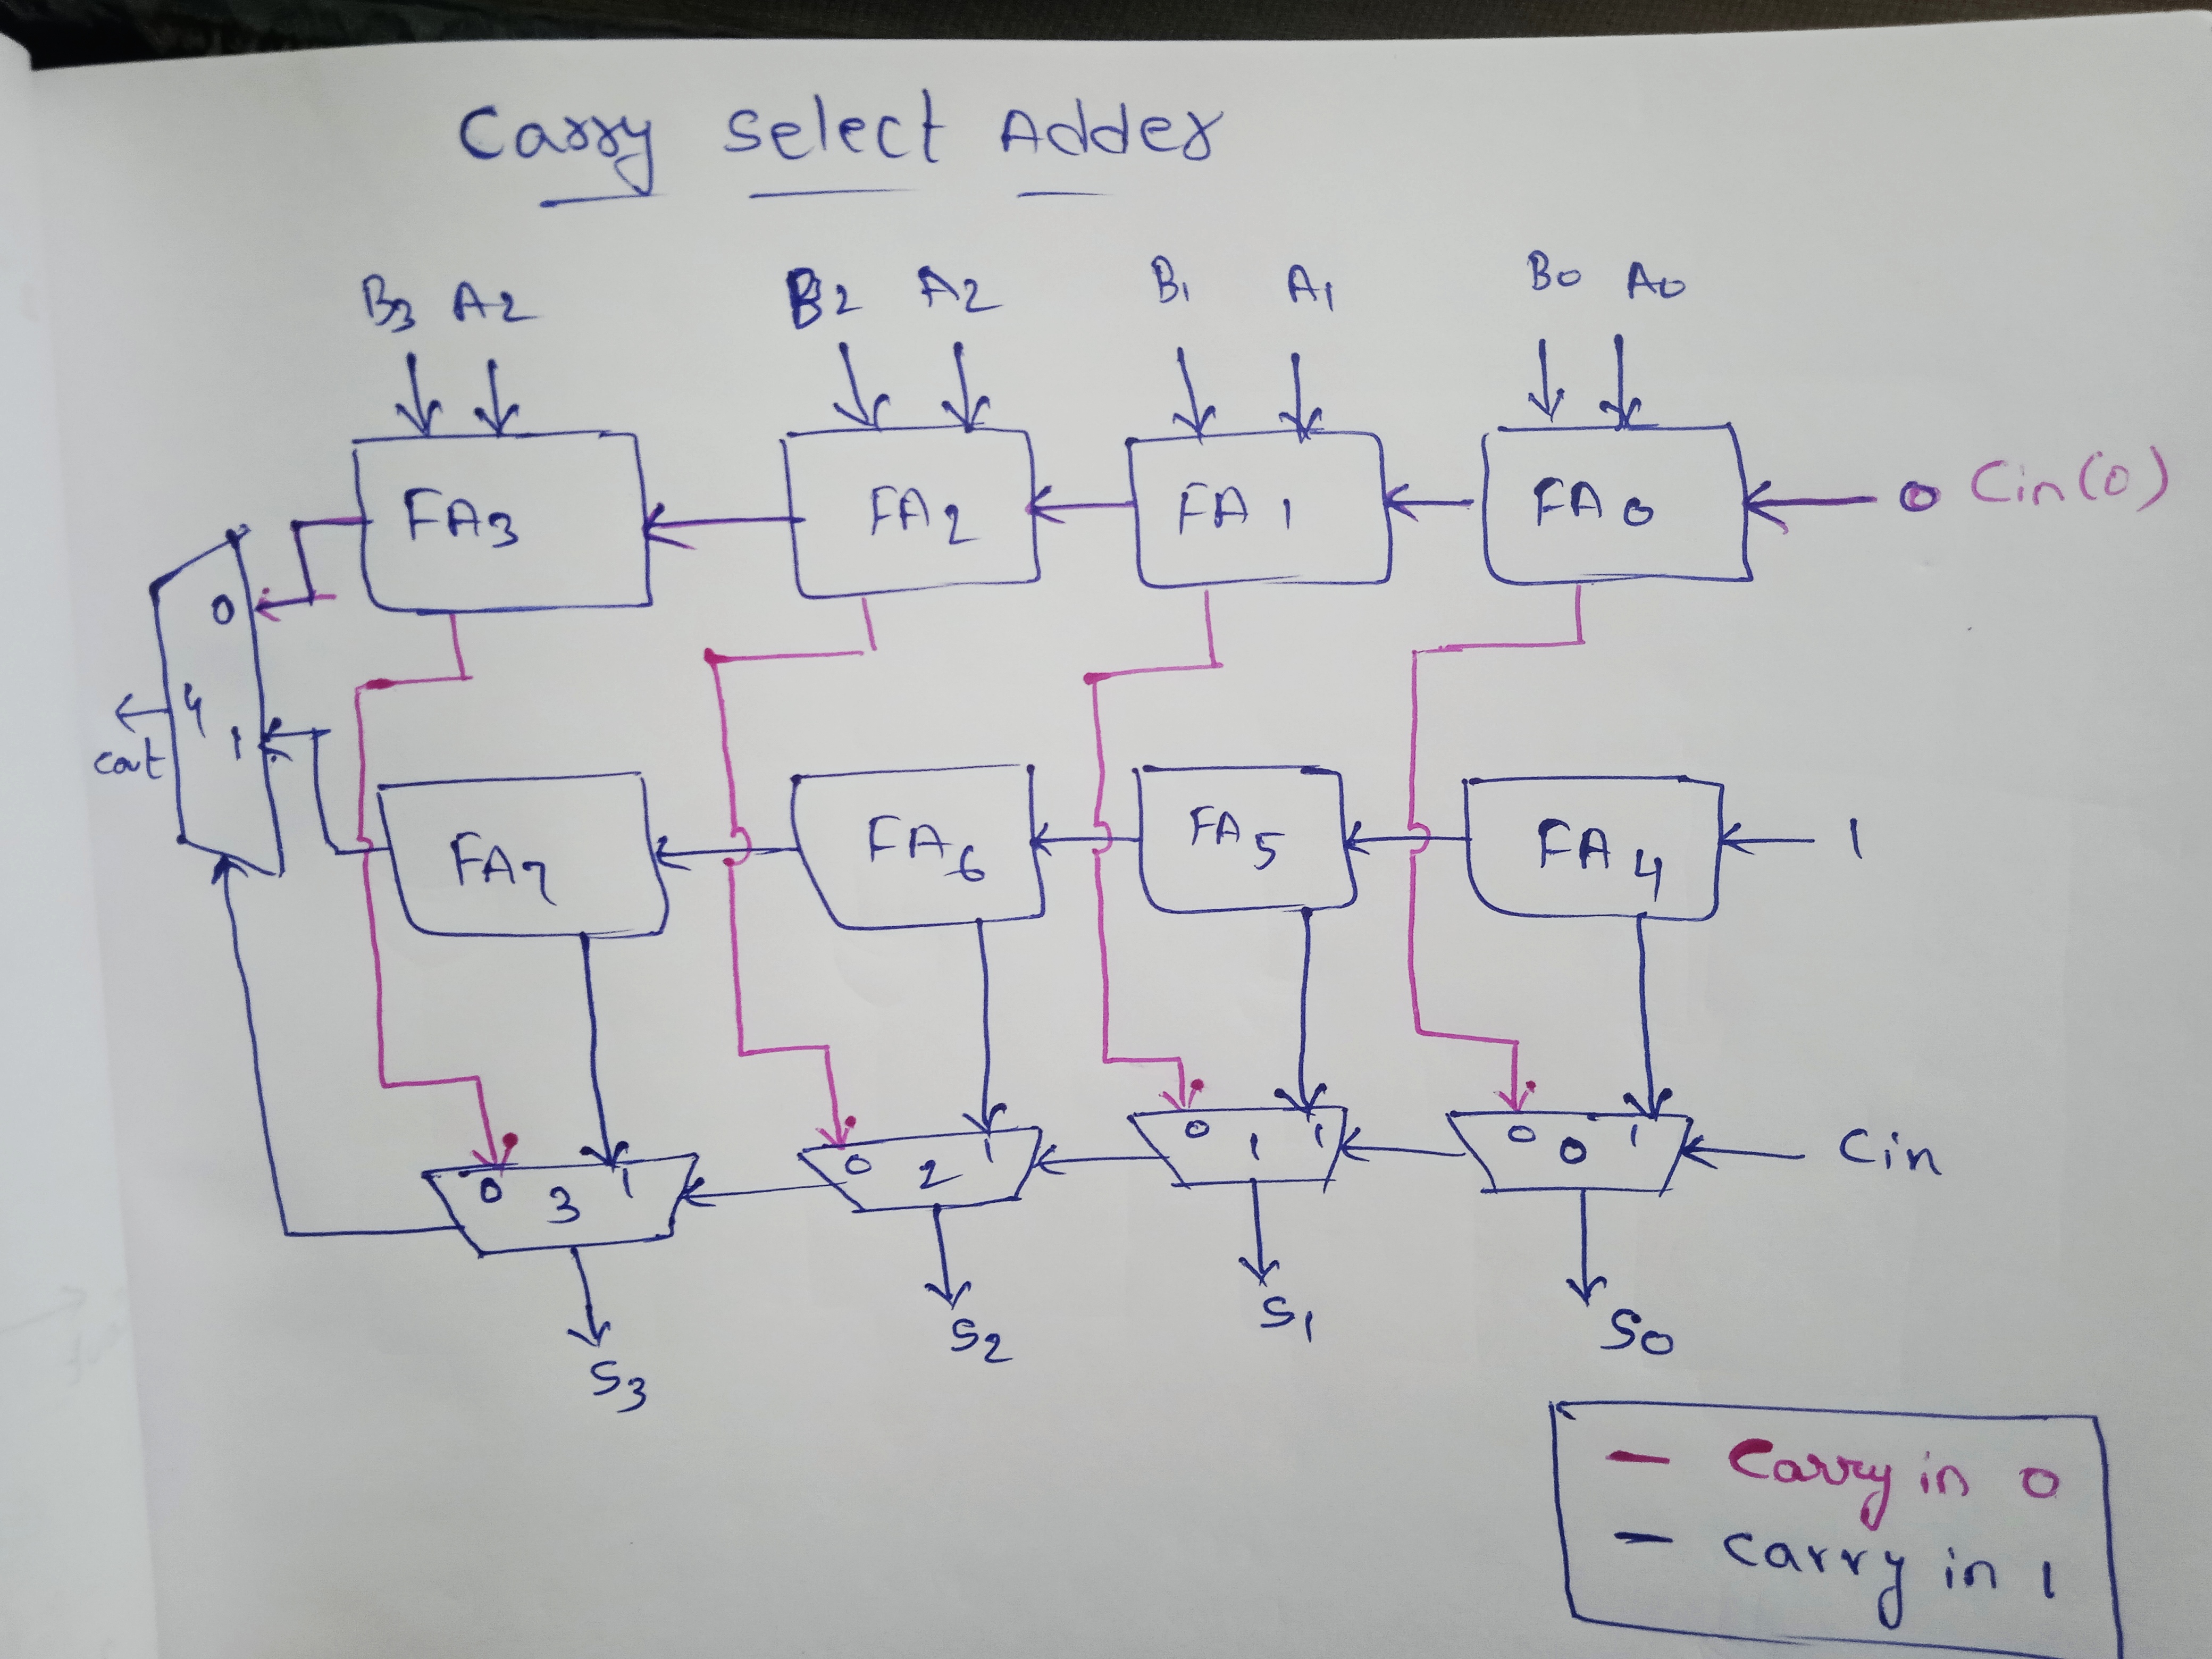 Carry Select Adder
B3 A2 B2 A2 B1 A1 B0 A0
FA3 FA2 FA 1 FA 0 0 Cin(0)
0
4
1
cout
FA7 FA6 FA5 FA 4 1
0 3 1 0 2 1 0 1 1 0 0 1 Cin
S3 S2 S1 S0
Carry in 0
carry in 1